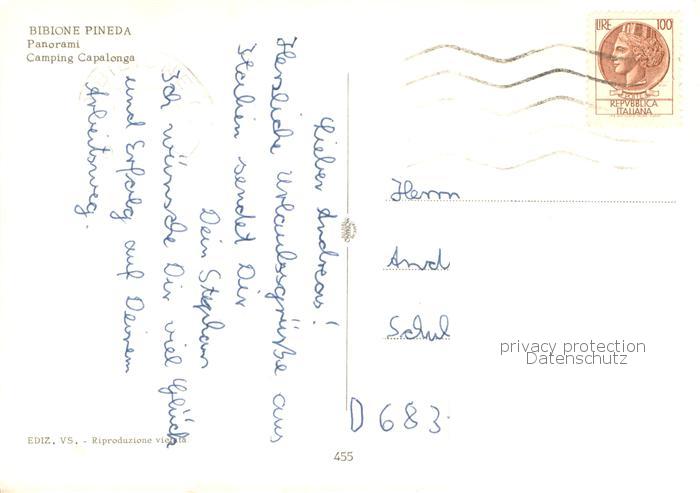 BIBIONE PINEDA
Panorami
Camping Capalonga
Lieber Andreas!
Herzliche Urlaubsgrüße aus
Italien sendet Dir
Dein Stephan
Ich wünsche Dir viel Glück
und Erfolg auf Deinem
Arbeitsweg.
LIRE 100
REPVBBLICA
ITALIANA
Herrn
And
Schul
D 683
privacy protection
Datenschutz
EDIZ. VS. - Riproduzione vietata
455